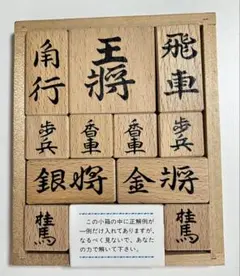 角行
王将
飛車
歩兵
香車
香車
歩兵
銀將
金將
桂馬
桂馬
この小箱の中に正解例が
一例だけ入れてありますが、
なるべく見ないで、あなた
の力で解いて下さい。